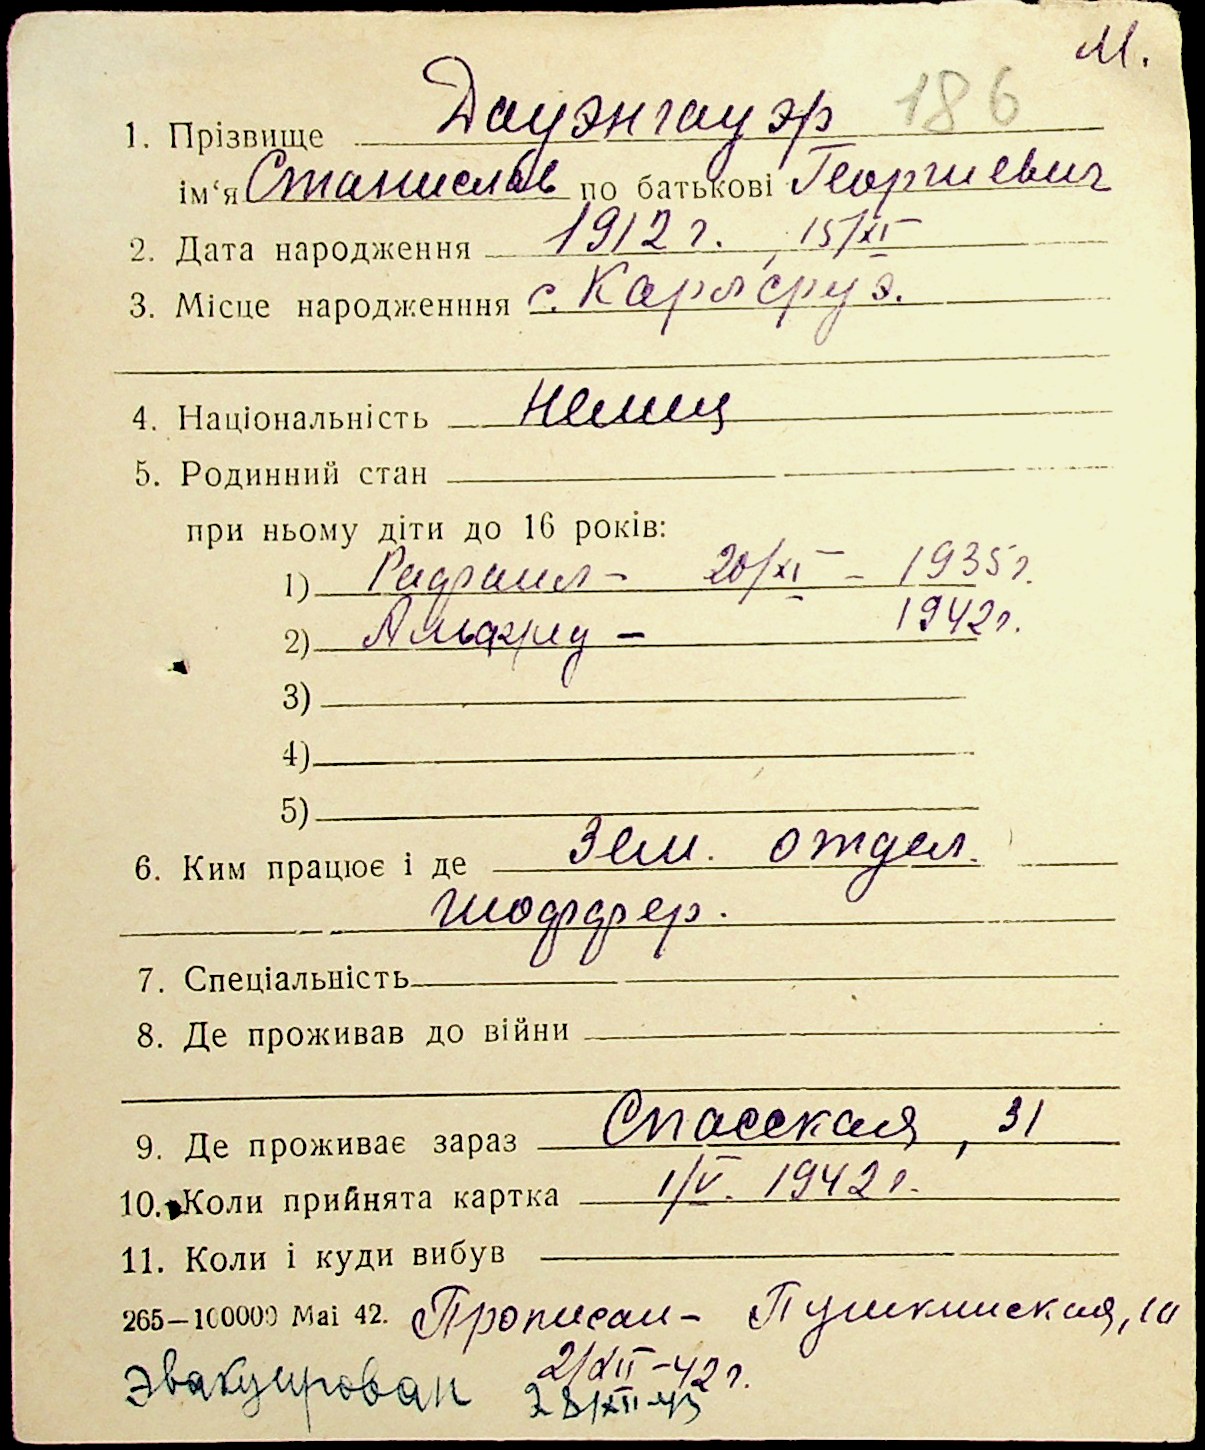 М.
186
1. Прізвище Дауэнгауэр
ім‘я Станислав по батькові Георгиевич
2. Дата народження 1912 г. , 15/XI
3. Місце народженння с. Карлсруэ.
4. Національність Немец
5. Родинний стан
при ньому діти до 16 років:
1) Рафаил – 20/XI – 1935 г.
2) Альфред – 1942 г.
3)
4)
5)
6. Ким працює і де Зем. отдел.
шоффер.
7. Спеціальність
8. Де проживав до війни
9. Де проживає зараз Спасская, 31
10. Коли прийнята картка 1/V. 1942 г.
11. Коли і куди вибув
265—100000 Маі 42. Прописан – Пушкинская,
2/XII – 42 г.
Эвакуирован 28/XII-43